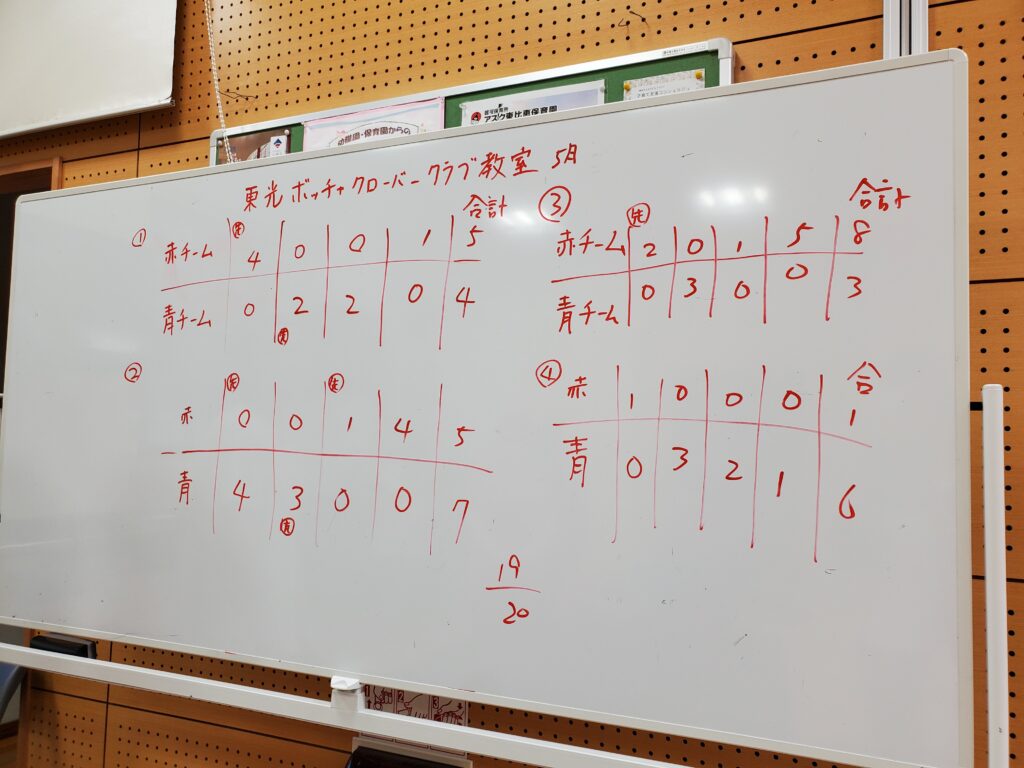 幼稚園・保育園からの
アスク東比恵保育園
東光 ボッチャ クローバークラブ教室 5月
① 合計
先
赤チーム 4 0 0 1 5
青チーム 0 2 2 0 4
② 先 先
赤 0 0 1 4 5
青 4 3 0 0 7
③ 先 合計
赤チーム 2 0 1 5 8
青チーム 0 3 0 0 3
④ 合
赤 1 0 0 0 1
青 0 3 2 1 6
19
20